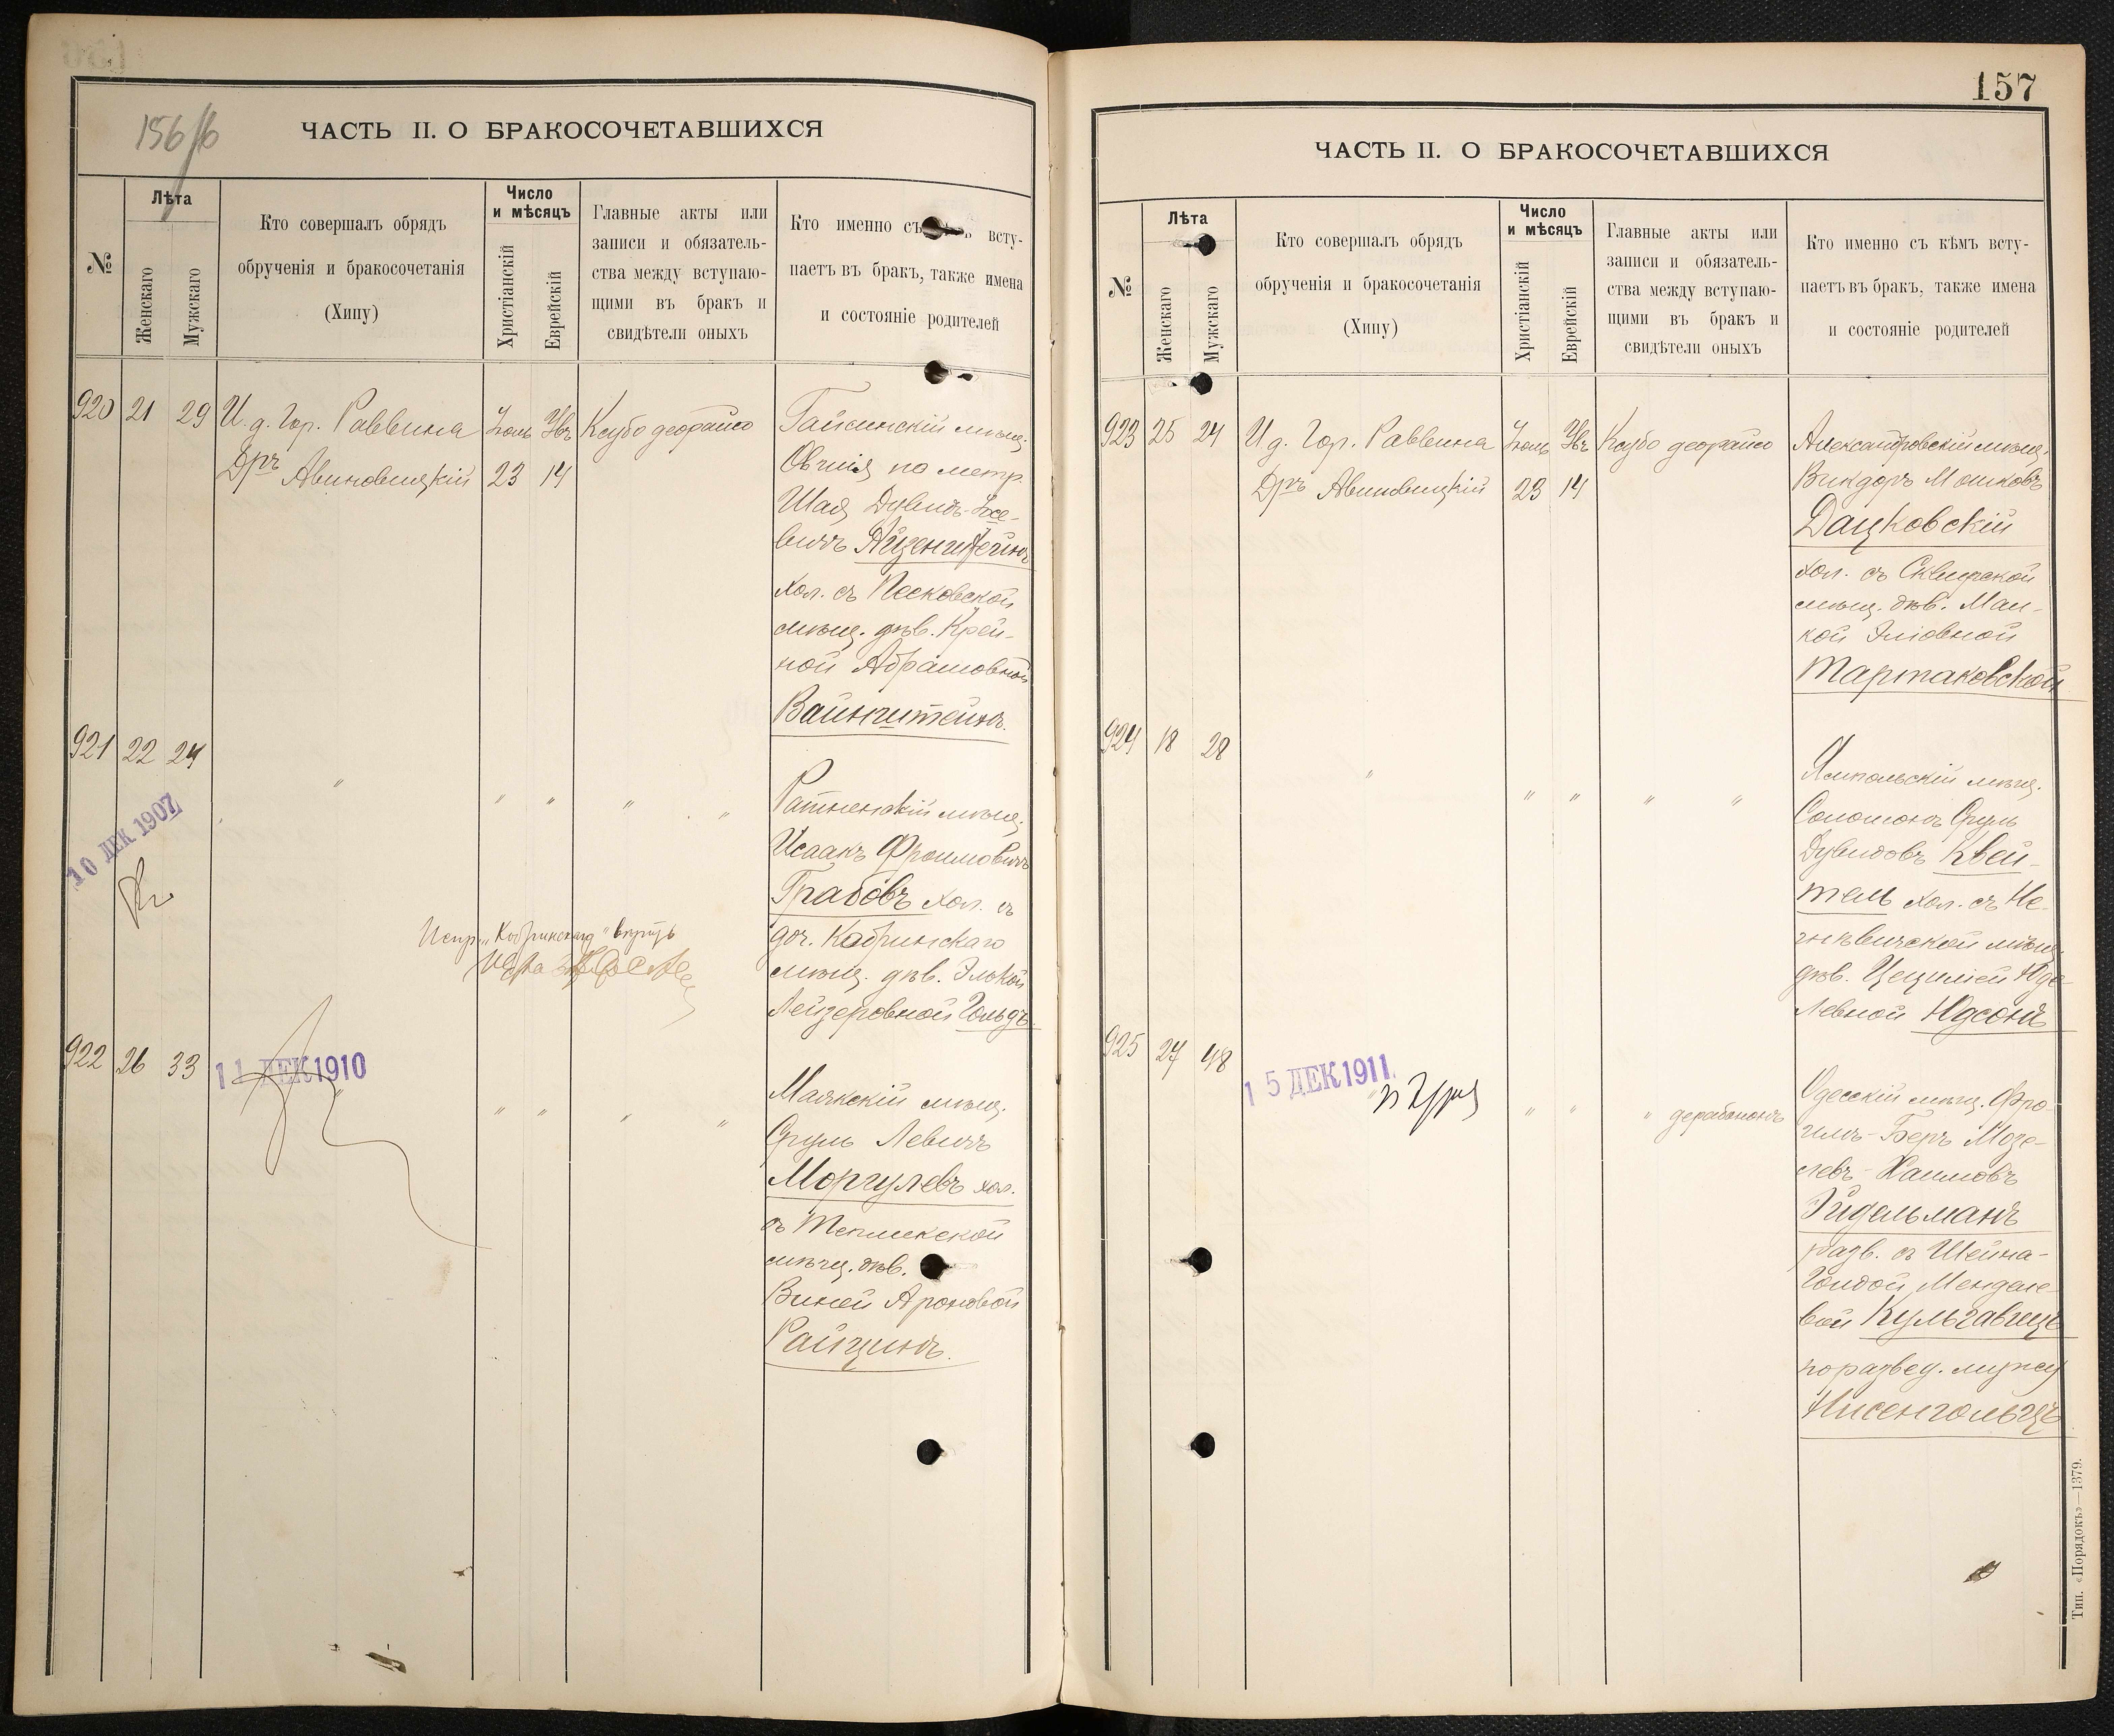 156/б
ЧАСТЬ II. О БРАКОСОЧЕТАВШИХСЯ
№
Лѣта
Женскаго
Мужскаго
Кто совершалъ обрядъ
обрученія и бракосочетанія
(Хипу)
Число
и мѣсяцъ
Христіанскій
Еврейскій
Главные акты или
записи и обязатель-
ства между вступаю-
щими въ бракъ и
свидѣтели оныхъ
Кто именно съ всту-
паетъ въ бракъ, также имена
и состояніе родителей
920 21 29 И. д. Гор. Раввина Іюль Ксубо деорайсо
Дръ Авиновицкій 23 14
Гайсинскій мѣщ.
Овшія по метр.
Шая Дувидъ-Іосе-
вичъ Айзенштейнъ
хол. съ Песковской
мѣщ. дѣв. Крей-
ной Абрамовной
Вайнштейнъ.
921 22 24 " " " " "
Ратненскій мѣщ.
Исаакъ Фроимовичъ
Грабовъ хол. съ
доч. Кобринскаго
мѣщ. дѣв. Элькой
Лейзеровной Гольдъ
10 ДЕК 1907
Испр. „Кобринскаго" вѣрить
922 26 33 " " " " "
11 ДЕК 1910
Маякскій мѣщ.
Сруль Левичъ
Моргулевъ хол.
съ Тепликской
мѣщ. дѣв.
Виней Ароновой
Райцинъ.
157
ЧАСТЬ II. О БРАКОСОЧЕТАВШИХСЯ
№
Лѣта
Женскаго
Мужскаго
Кто совершалъ обрядъ
обрученія и бракосочетанія
(Хипу)
Число
и мѣсяцъ
Христіанскій
Еврейскій
Главные акты или
записи и обязатель-
ства между вступаю-
щими въ бракъ и
свидѣтели оныхъ
Кто именно съ кѣмъ всту-
паетъ въ бракъ, также имена
и состояніе родителей
923 25 24 И д. Гор. Раввина Іюль Ксубо деорайсо
Дръ Авиновицкій 23 14
Александровскій мѣщ.
Викдоръ Мошковъ
Дацковскій
хол. съ Сквирской
мѣщ. дѣв. Ман-
кой Эліовной
Тартаковской
924 18 28 " " " " "
Ямпольскій мѣщ.
Соломонъ Сруль
Дувидовъ Квей-
тель хол. съ Не-
гнѣвичской мѣщ.
дѣв. Цециліей Юде-
левной Юдсонъ
925 27 48 " " " " дерабононъ
15 ДЕК 1911.
Одесскій мѣщ. Фро-
имъ-Беръ Мозе-
левъ-Хаимовъ
Гидальманъ
разв. съ Шейна-
Голдой Менделе-
вой Кульгавецъ
по развед. мужу
Нисенгольцъ
Тип. «Порядокъ»—1379.